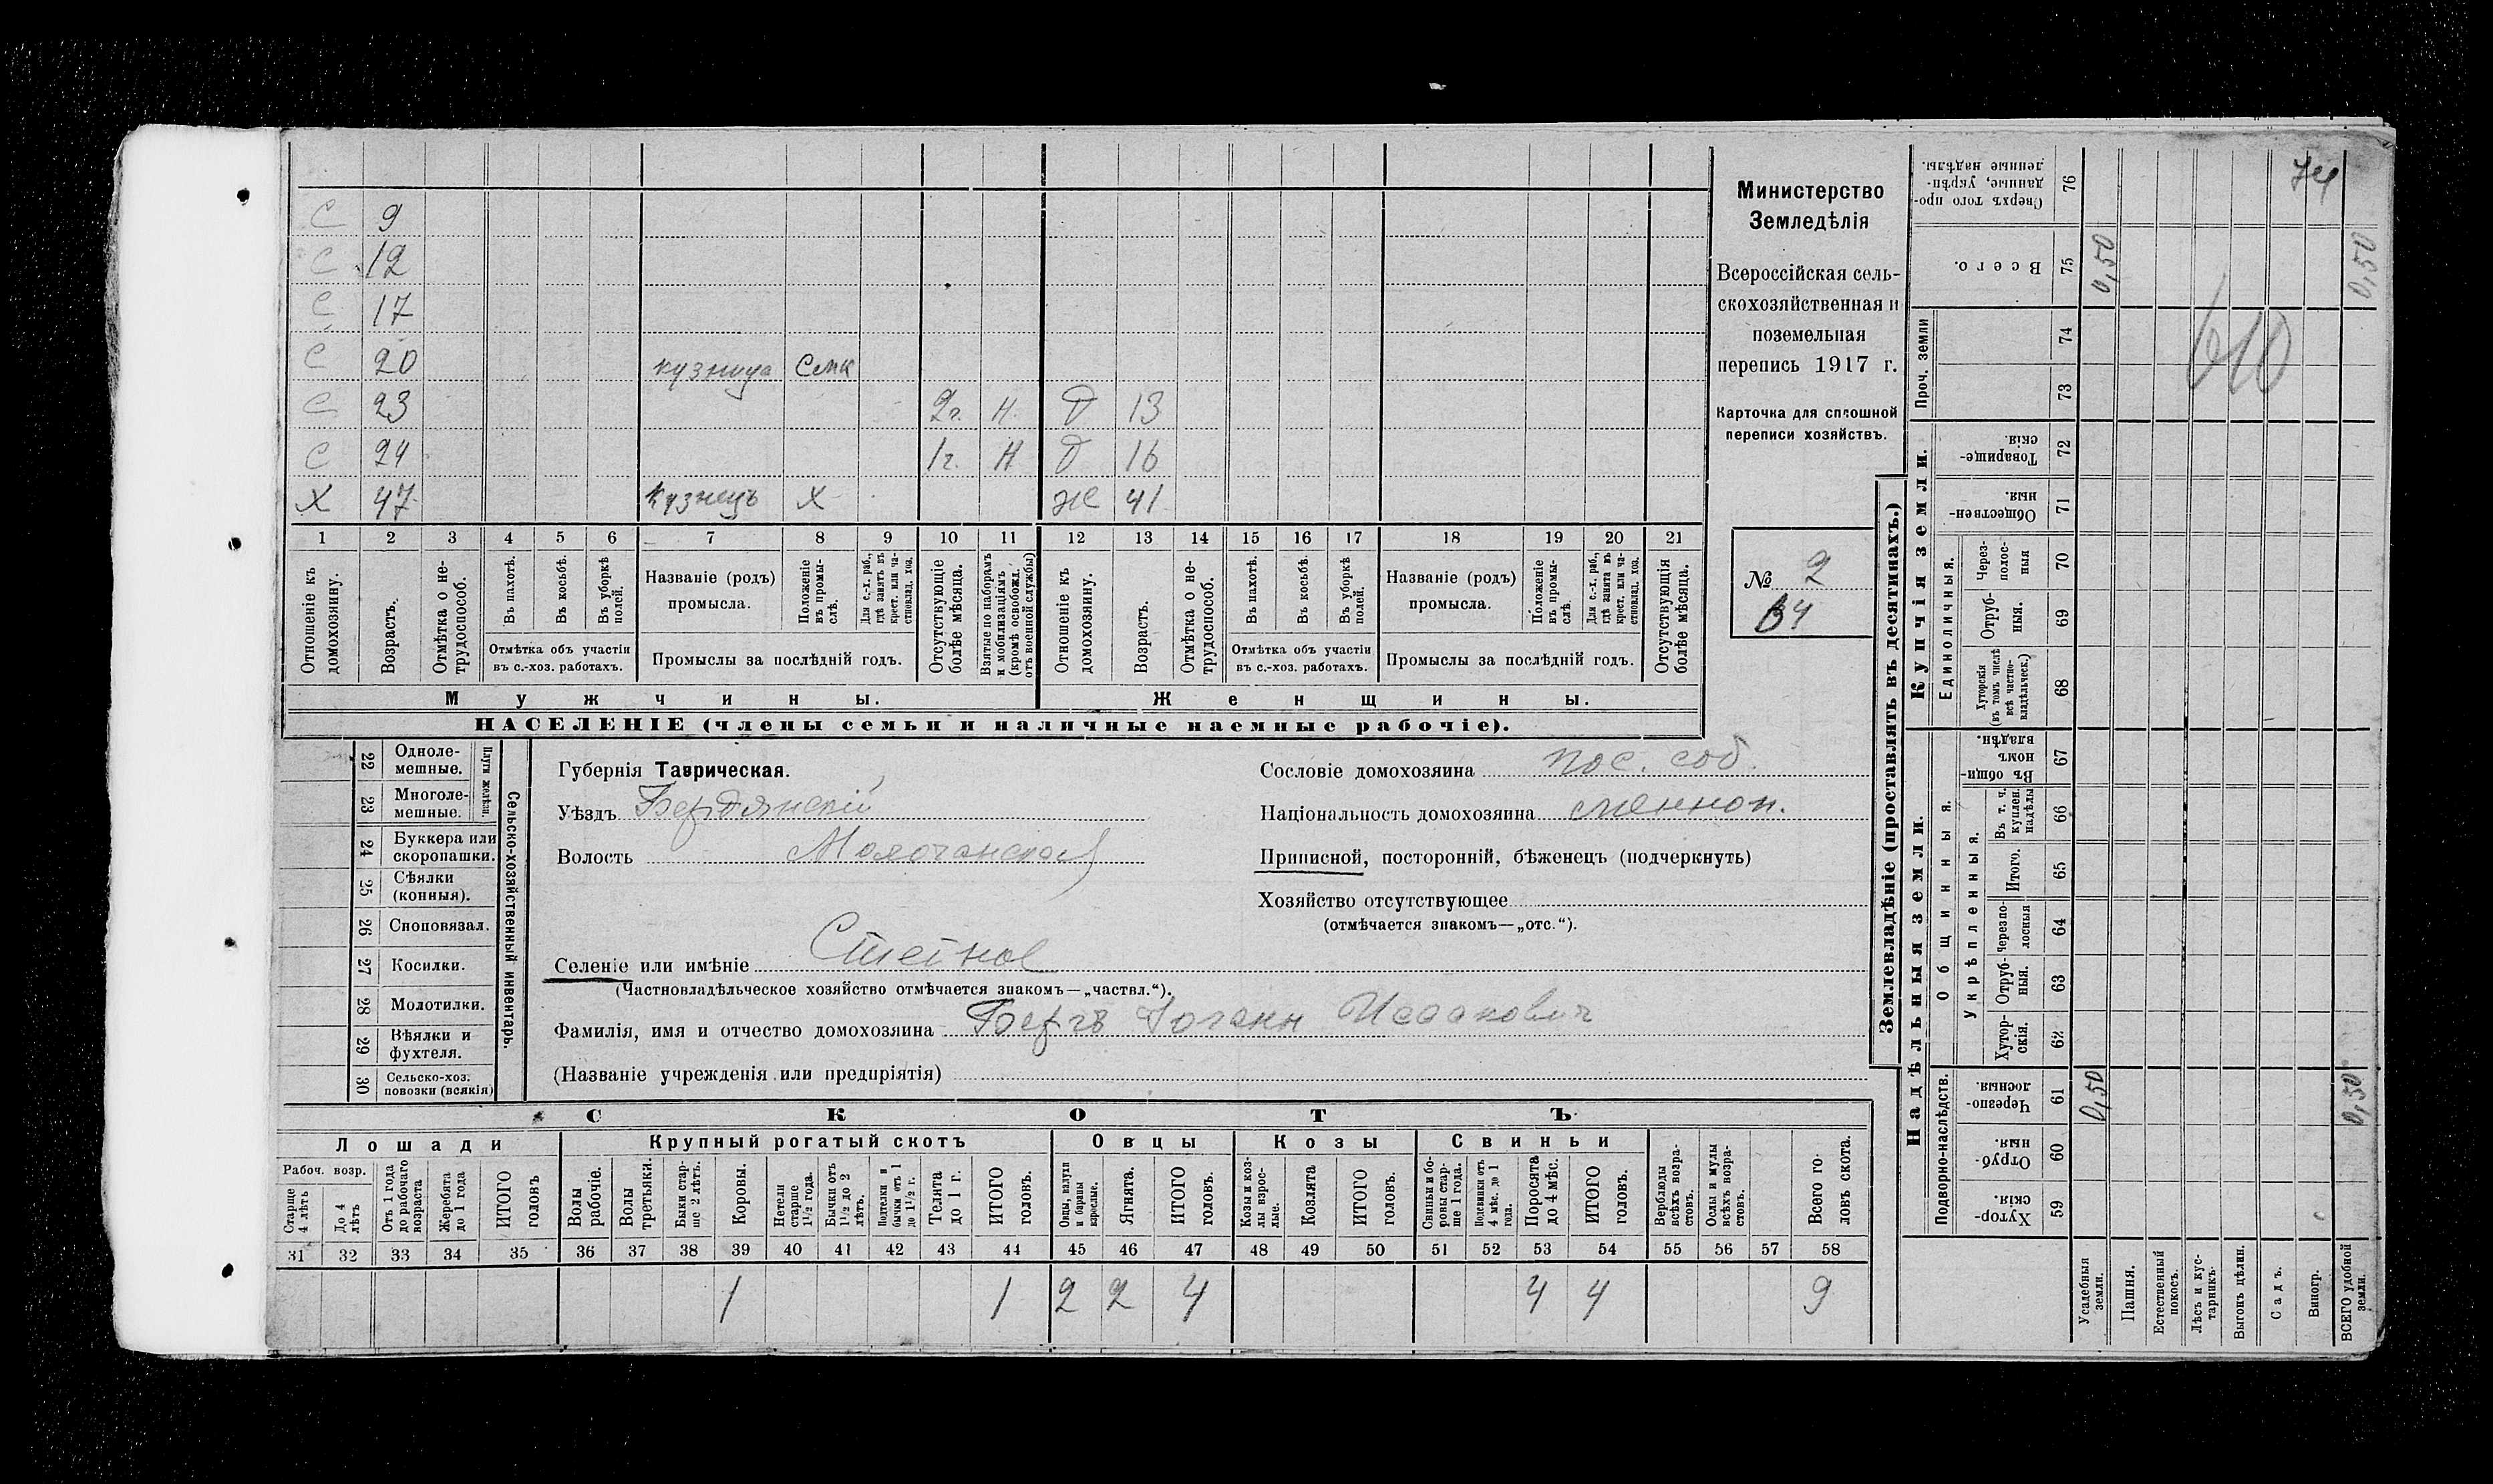 74
С 9
С 12
С 17
С 20 кузница Смк
С 23 2г. Н. Д 13
С 24 1г. Н Д 16
Х 47 кузнецъ Х Ж 41
1 2 3 4 5 6 7 8 9 10 11 12 13 14 15 16 17 18 19 20 21
Отношеніе къ домохозяину.
Возрастъ.
Отмѣтка о не-трудоспособ.
Въ пахотѣ.
Въ косьбѣ.
Въ уборкѣ полей.
Отмѣтка объ участіи
въ с.-хоз. работахъ.
Названіе (родъ)
промысла.
Положеніе въ промы-слѣ.
Для с.-х. раб., гдѣ занятъ въ крест. или ча-стновлад. хоз.
Промыслы за послѣдній годъ.
Отсутствующіе болѣе мѣсяца.
Взятые по наборамъ и мобилизаціямъ (кромѣ освобожд. отъ военной службы)
Отношеніе къ домохозяину.
Возрастъ.
Отмѣтка о не-трудоспособ.
Въ пахотѣ.
Въ косьбѣ.
Въ уборкѣ полей.
Отмѣтка объ участіи
въ с.-хоз. работахъ.
Названіе (родъ)
промысла.
Положеніе въ промы-слѣ.
Для с.-х. раб., гдѣ занята въ крест. или ча-стновлад. хоз.
Промыслы за послѣдній годъ.
Отсутствующія болѣе мѣсяца.
Мужчины. Женщины.
НАСЕЛЕНІЕ (члены семьи и наличные наемные рабочіе).
Министерство
Земледѣлія
Всероссійская сель-
скохозяйственная и
поземельная
перепись 1917 г.
Карточка для сплошной
переписи хозяйствъ.
№ 2
В4
22 Одноле-мешные.
23 Многоле-мешные.
Плуги желѣзн.
24 Буккера или скоропашки.
25 Сѣялки (конныя).
26 Сноповязал.
27 Косилки.
28 Молотилки.
29 Вѣялки и фухтеля.
30 Сельско-хоз. повозки (всякія)
Сельско-хозяйственный инвентарь.
Губернія Таврическая.
Уѣздъ Бердянскій
Волость Молочанская
Селеніе или имѣніе
(Частновладѣльческое хозяйство отмѣчается знакомъ—„частвл.“).
Фамилія, имя и отчество домохозяина Бергъ Іоганн Исаакович
(Названіе учрежденія или предпріятія)
Сословіе домохозяина пос. соб.
Національность домохозяина меннон.
Приписной, посторонній, бѣженецъ (подчеркнуть)
Хозяйство отсутствующее
(отмѣчается знакомъ—„отс.“).
СКОТЪ
Лошади Крупный рогатый скотъ Овцы Козы Свиньи
Рабоч. возр.
Старше 4 лѣтъ
До 4 лѣтъ
Отъ 1 года до рабочаго возраста
Жеребята до 1 года
ИТОГО головъ
Волы рабочіе.
Волы третьяки.
Быки стар-ше 2 лѣтъ.
Коровы.
Нетели старше 1½ года.
Бычки отъ 1½ до 2 лѣтъ.
Подтелки и бычки отъ 1 до 1½ г.
Телята до 1 г.
ИТОГО головъ.
Овцы, валухи и бараны взрослые.
Ягнята.
ИТОГО головъ.
Козы и коз-лы взрос-лые.
Козлята
ИТОГО головъ.
Свиньи и бо-ровы стар-ше 1 года.
Подсвинки отъ 4 мѣс. до 1 года.
Поросята до 4 мѣс.
ИТОГО головъ.
Верблюды всѣхъ возра-стовъ.
Ослы и мулы всѣхъ возра-стовъ.
Всего го-ловъ скота.
31 32 33 34 35 36 37 38 39 40 41 42 43 44 45 46 47 48 49 50 51 52 53 54 55 56 57 58
1 1 2 2 4 4 4 9
Землевладѣніе (проставлять въ десятинахъ.)
Надѣльныя земли. Купчія земли. Проч. земли
Подворно-наслѣдств.
Общинныя.
Укрѣпленныя.
Единоличныя.
Хутор-скія. 59
Отруб-ныя. 60
Черезпо-лосныя. 61 0,50 0,50
Хутор-скія. 62
Отруб-ныя. 63
Черезпо-лосныя 64
Итого. 65
Въ т. ч. куплен. надѣлы 66
Въ общи-номъ владѣн. 67
Хуторскія (въ томъ числѣ всѣ частно-владѣльческ.) 68
Отруб-ныя. 69
Через-полос-ныя 70
Обществен-ныя. 71
Товарище-скія. 72
73
74
Всего. 75 0,50 0,50
Сверхъ того про-данные, укрѣп-ленные надѣлы. 76
Усадебныя земли.
Пашня.
Естественный покосъ.
Лѣсъ и кус-тарникъ.
Выгонъ цѣлин.
Садъ.
Виногр.
ВСЕГО удобной земли.